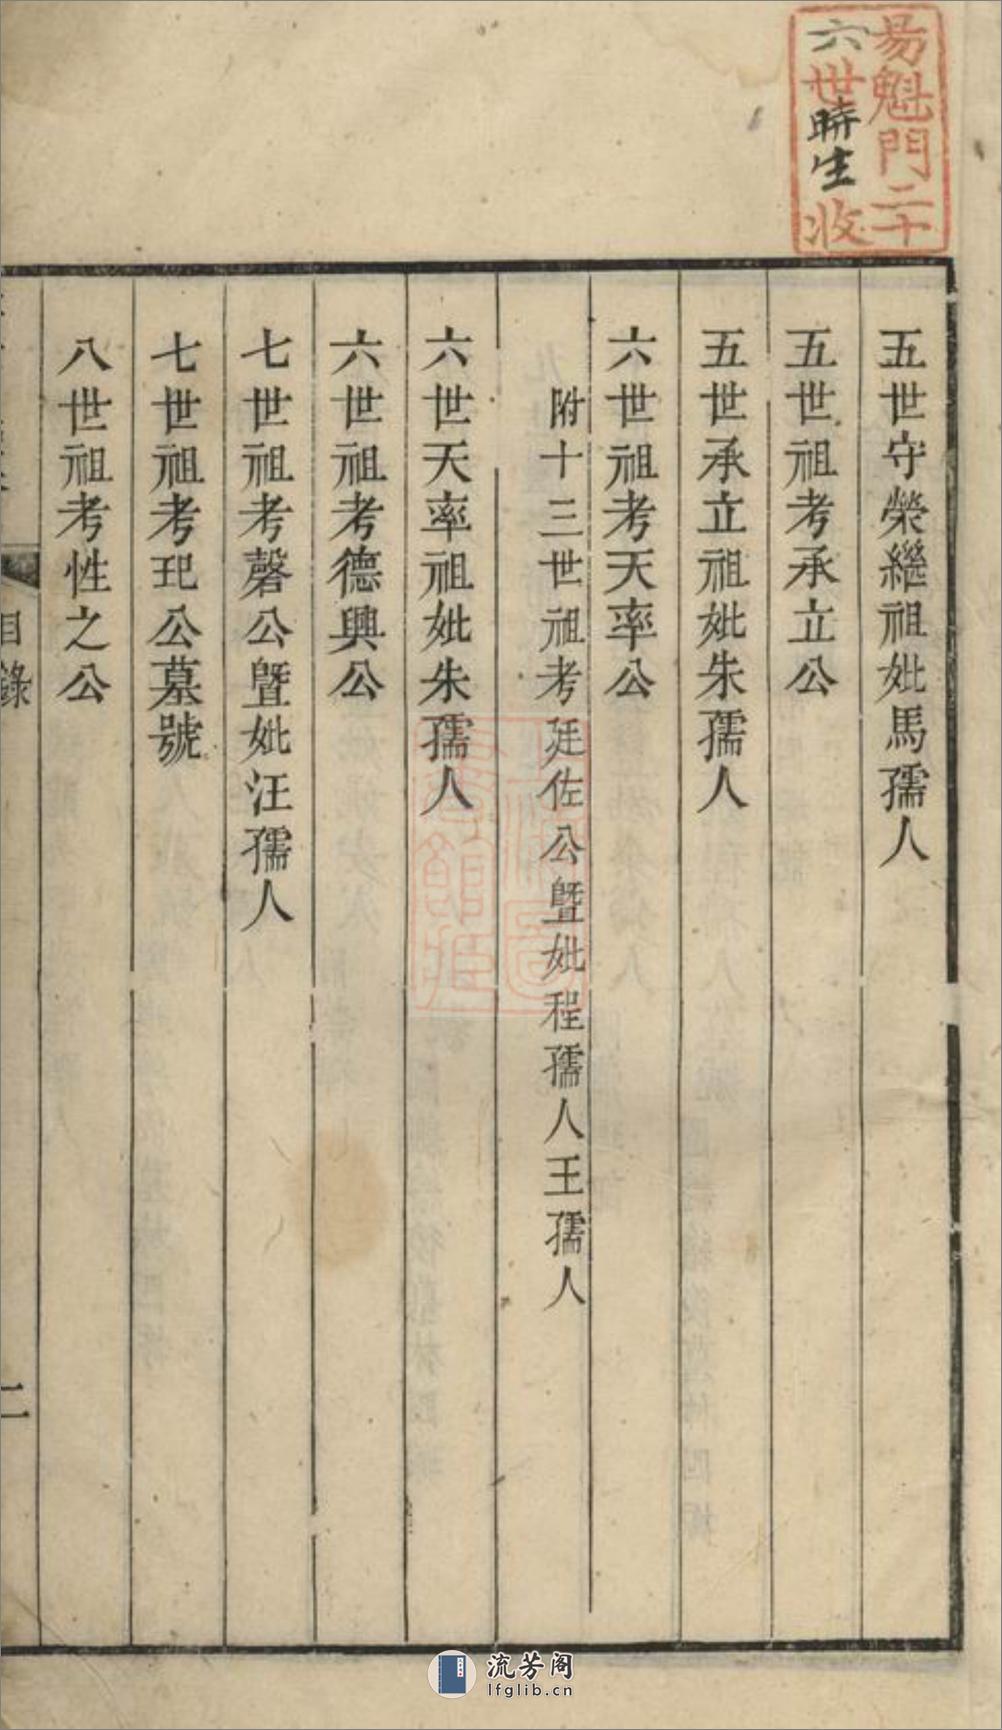 易魁門二十
六世時生收
五世守榮繼祖妣馬孺人
五世祖考承立公
五世承立祖妣朱孺人
六世祖考天率公
附十三世祖考廷佐公暨妣程孺人王孺人
六世天率祖妣朱孺人
六世祖考德興公
七世祖考磬公暨妣汪孺人
七世祖考玘公墓號
八世祖考性之公
目錄
二
流芳阁
lfglib.cn